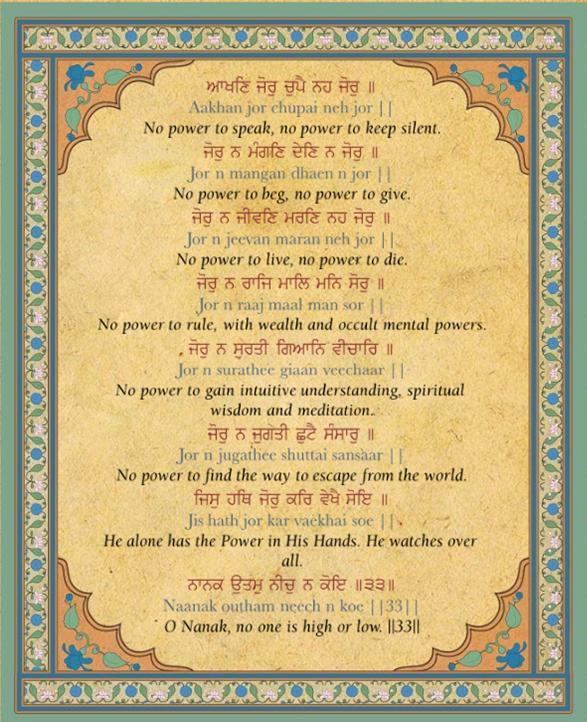 ਆਖਣਿ ਜੋਰੁ ਚੁਪੈ ਨਹ ਜੋਰੁ ॥
Aakhan jor chupai neh jor ||
No power to speak, no power to keep silent.
ਜੋਰੁ ਨ ਮੰਗਣਿ ਦੇਣਿ ਨ ਜੋਰੁ ॥
Jor n mangan dhaen n jor ||
No power to beg, no power to give.
ਜੋਰੁ ਨ ਜੀਵਣਿ ਮਰਣਿ ਨਹ ਜੋਰੁ ॥
Jor n jeevan maran neh jor ||
No power to live, no power to die.
ਜੋਰੁ ਨ ਰਾਜਿ ਮਾਲਿ ਮਨਿ ਸੋਰੁ ॥
Jor n raaj maal man sor ||
No power to rule, with wealth and occult mental powers.
ਜੋਰੁ ਨ ਸੁਰਤੀ ਗਿਆਨਿ ਵੀਚਾਰਿ ॥
Jor n surathee giaan veechaar ||
No power to gain intuitive understanding, spiritual
wisdom and meditation.
ਜੋਰੁ ਨ ਜੁਗਤੀ ਛੁਟੈ ਸੰਸਾਰੁ ॥
Jor n jugathee shuttai sansaar ||
No power to find the way to escape from the world.
ਜਿਸੁ ਹਥਿ ਜੋਰੁ ਕਰਿ ਵੇਖੈ ਸੋਇ ॥
Jis hath jor kar vaekhai soe ||
He alone has the Power in His Hands. He watches over
all.
ਨਾਨਕ ਉਤਮੁ ਨੀਚੁ ਨ ਕੋਇ ॥੩੩॥
Naanak outham neech n koe ||33||
O Nanak, no one is high or low. ||33||